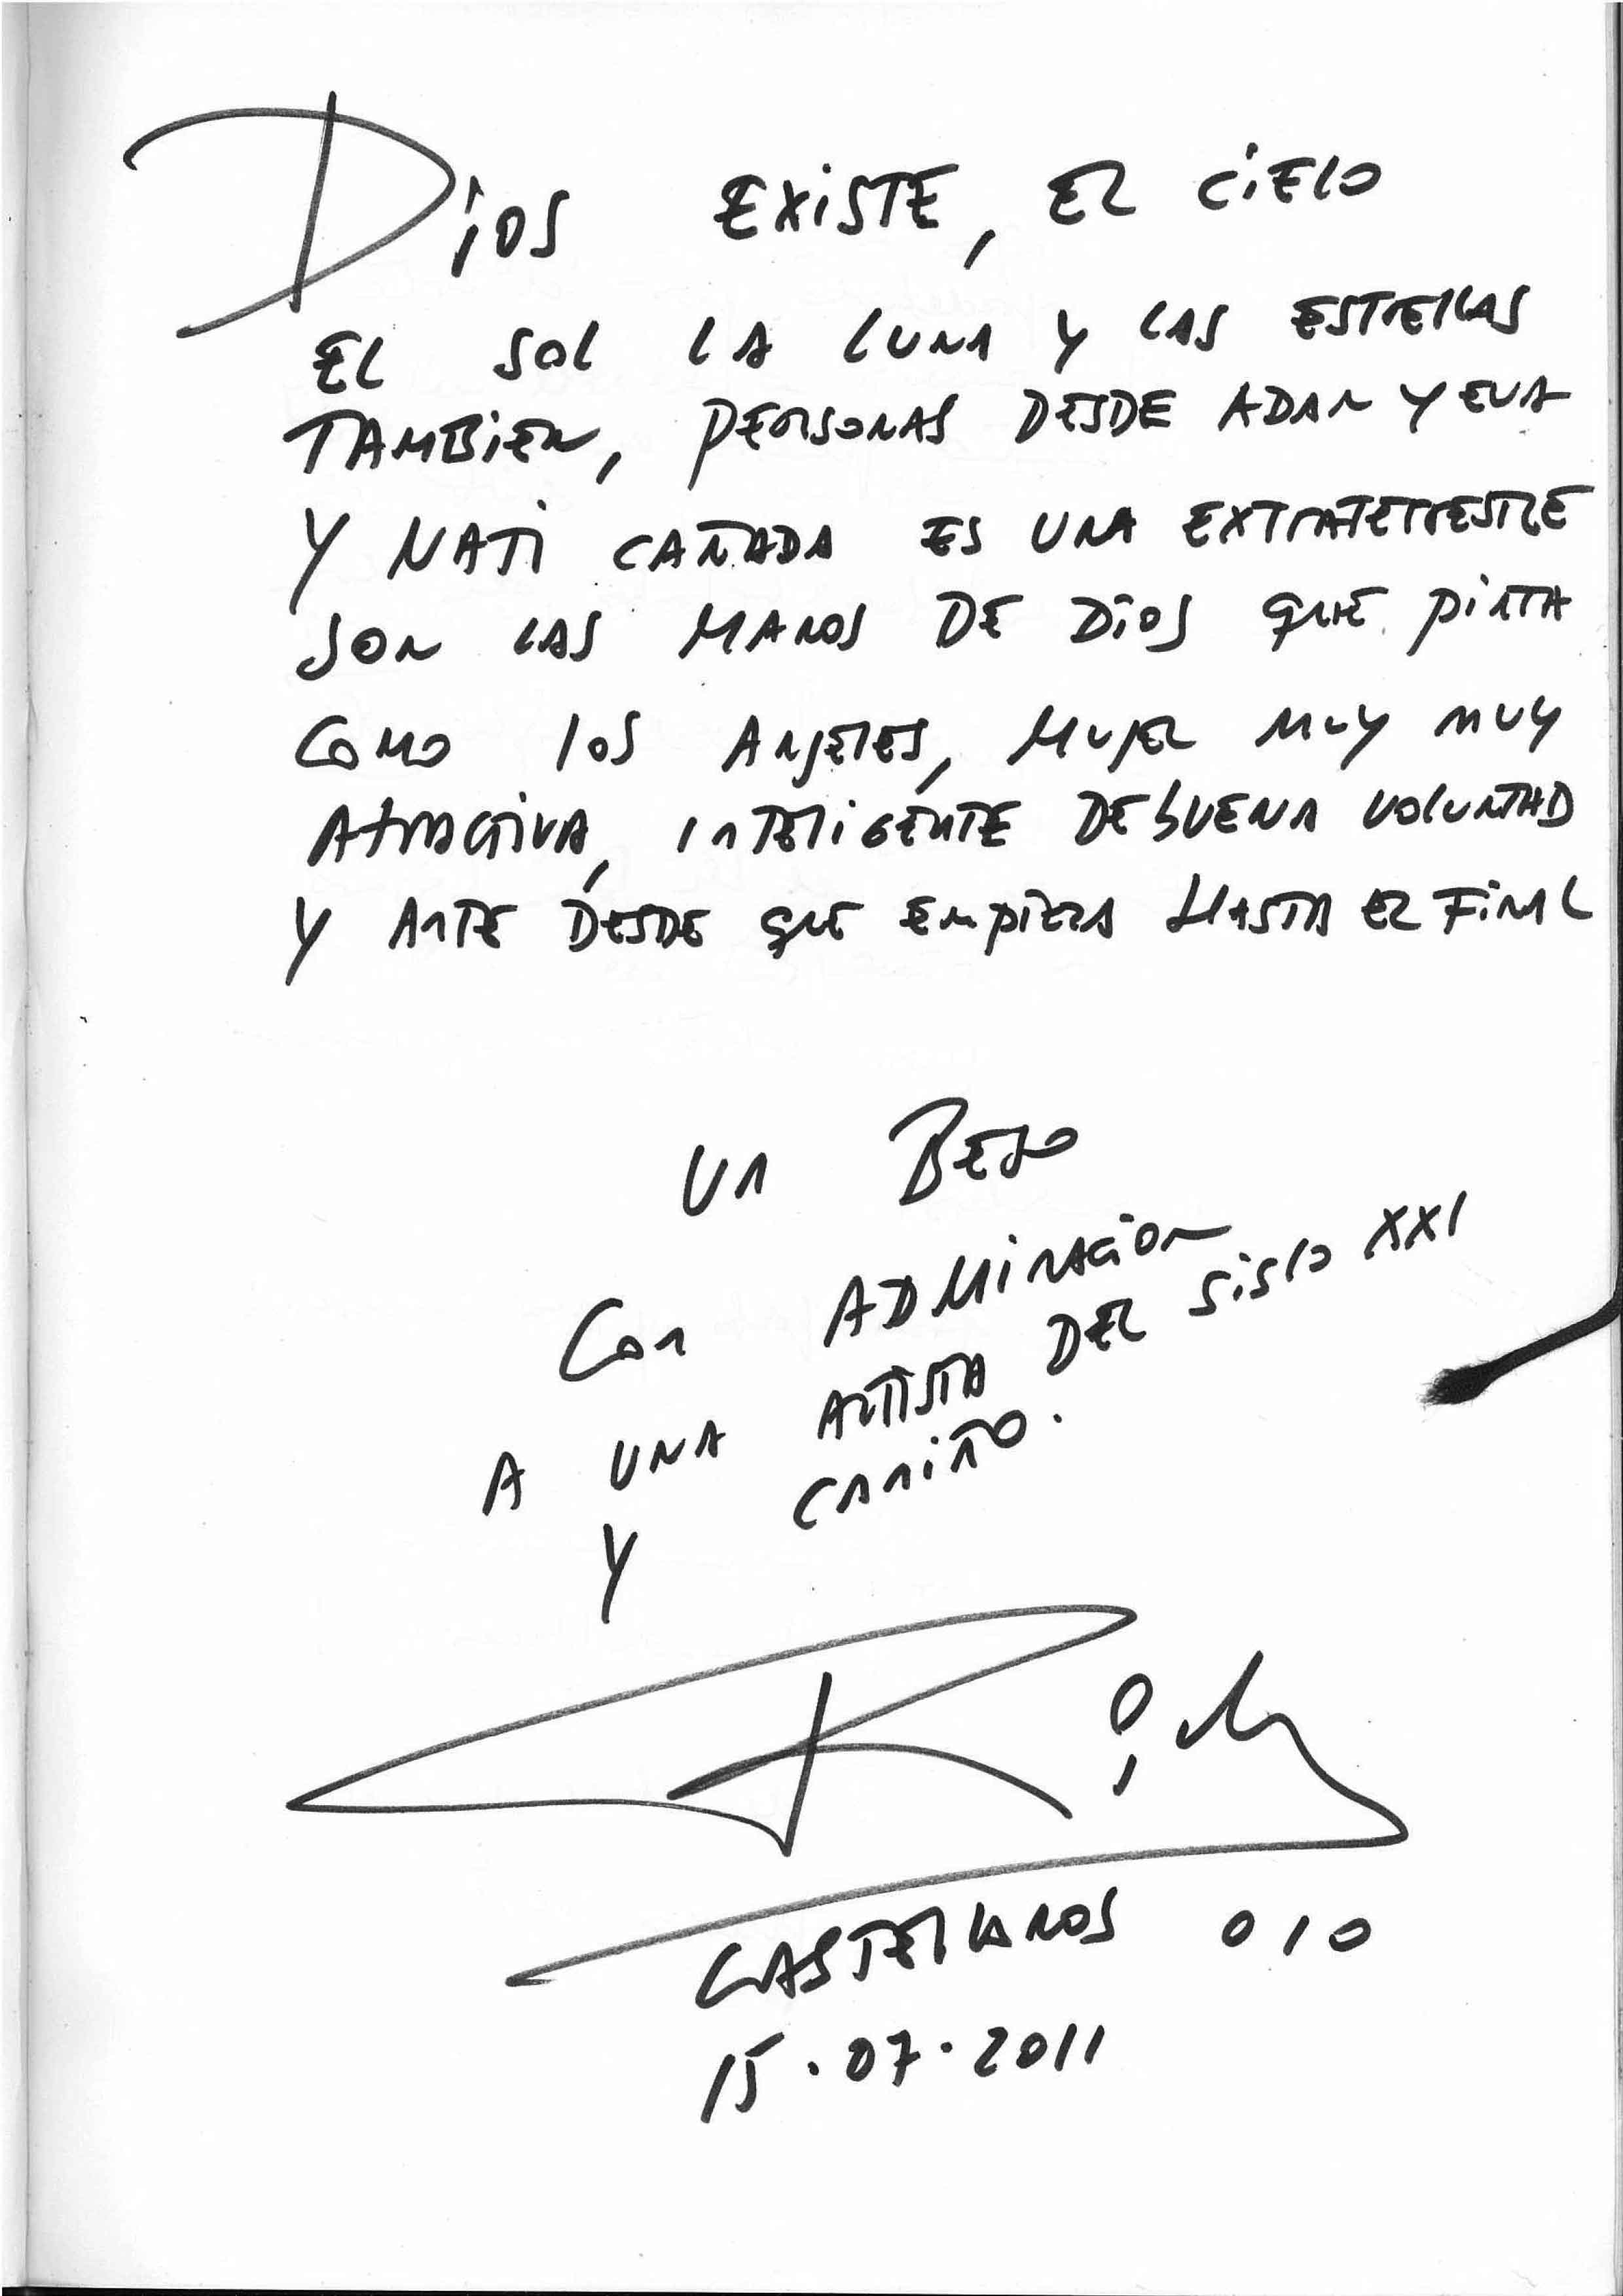 Dios EXiSTE, EL CiELO
EL SOL LA LUNA Y LAS ESTRELLAS
TAMBiEN, PERSONAS DESDE ADAN Y EVA
Y NATi CAÑADA ES UNA EXTRATERRESTRE
SON LAS MANOS DE DiOS QUE PiNTA
COMO LOS ANJELES, MUJER MUY MUY
AtRACTiVA, INTELiGENTE DE bUENA VOLUNTAD
Y ARTE DESDE QUE EMPiEZA HASTA EL FiNAL
UN BESO
CON ADMiRACiON
A UNA ARTISTA DEL SiGLO XXI
Y CARiÑO.
CASTELLANOS 010
15.07.2011